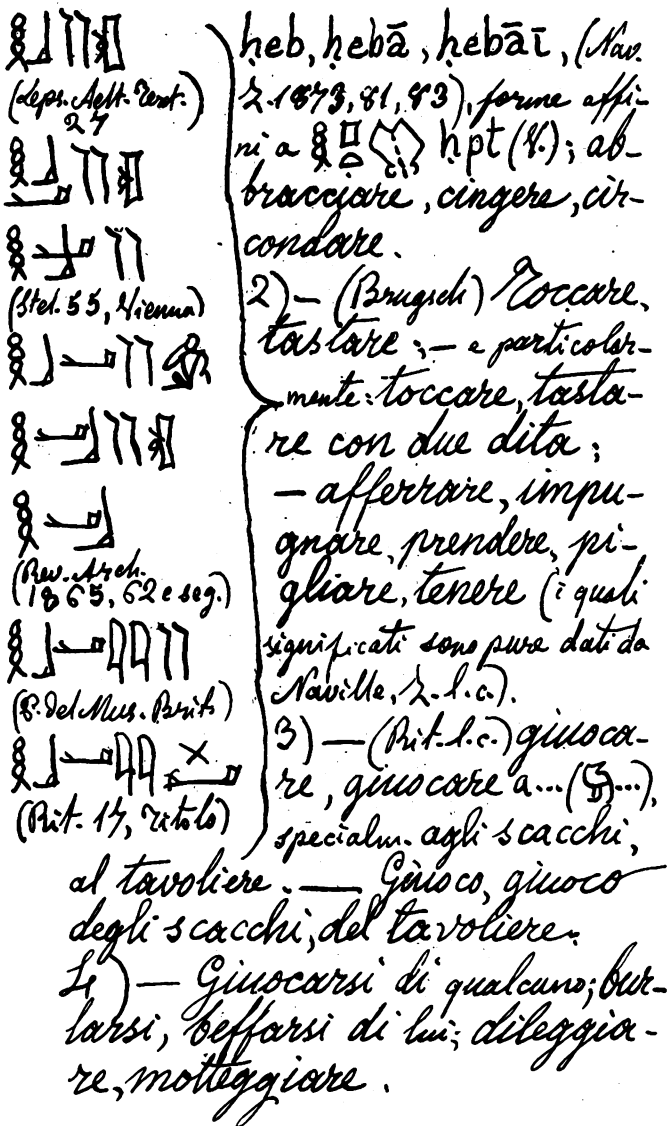 (Leps. Aelt. Text.
27)
(Stel. 55, Vienna)
(Rev. Arch.
1865, 62 e seg.)
(P. del Mus. Brit.)
(Rit. 17, Titolo)
ḥeb, ḥebā, ḥebāī, (Nav.
Z. 1873, 81, 83), forme affi-
ni a ḥpt (V.); ab-
bracciare, cingere, cir-
condare.
2) — (Brugsch) Toccare,
tastare; — e particolar-
mente: toccare, tasta-
re con due dita;
— afferrare, impu-
gnare, prendere, pi-
gliare, tenere (i quali
significati sono pure dati da
Naville, Z. l. c.).
3) — (Rit. l. c.) giuoca-
re, giuocare a... (...),
specialm. agli scacchi,
al tavoliere. — Giuoco, giuoco
degli scacchi, del tavoliere.
4) — Giuocarsi di qualcuno; bur-
larsi, beffarsi di lui; dileggia-
re, motteggiare.